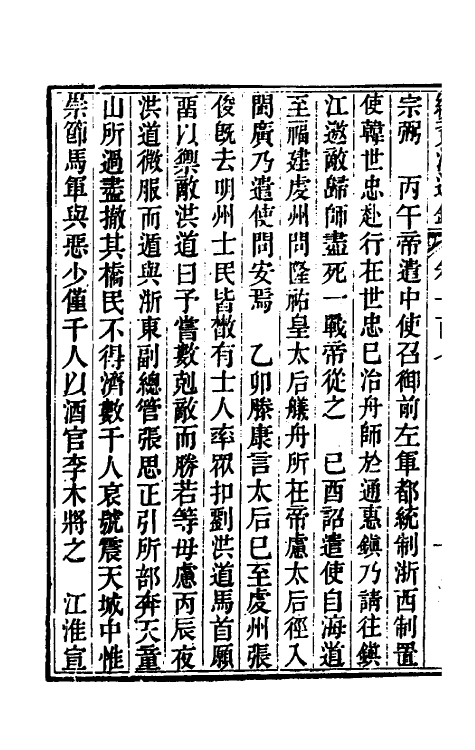 宗弼　丙午帝遣中使召御前左軍都統制浙西制置
使韓世忠赴行在世忠已治舟師於通惠鎭乃請往鎭
江邀敵歸師盡死一戰帝從之　己酉詔遣使自海道
至福建虔州問隆祐皇太后艤舟所在帝慮太后徑入
閩廣乃遣使問安焉　乙卯滕康言太后已至虔州張
俊旣去明州士民皆散有士人率眾扣劉洪道馬首願
畱以禦敵洪道曰予嘗數剋敵而勝若等毋慮丙辰夜
洪道微服而遁與浙東副總管張思正引所部奔天童
山所過盡撤其橋民不得濟數千人哀號震天城中惟
崇節馬軍與惡少僅千人以酒官李木將之　江淮宣